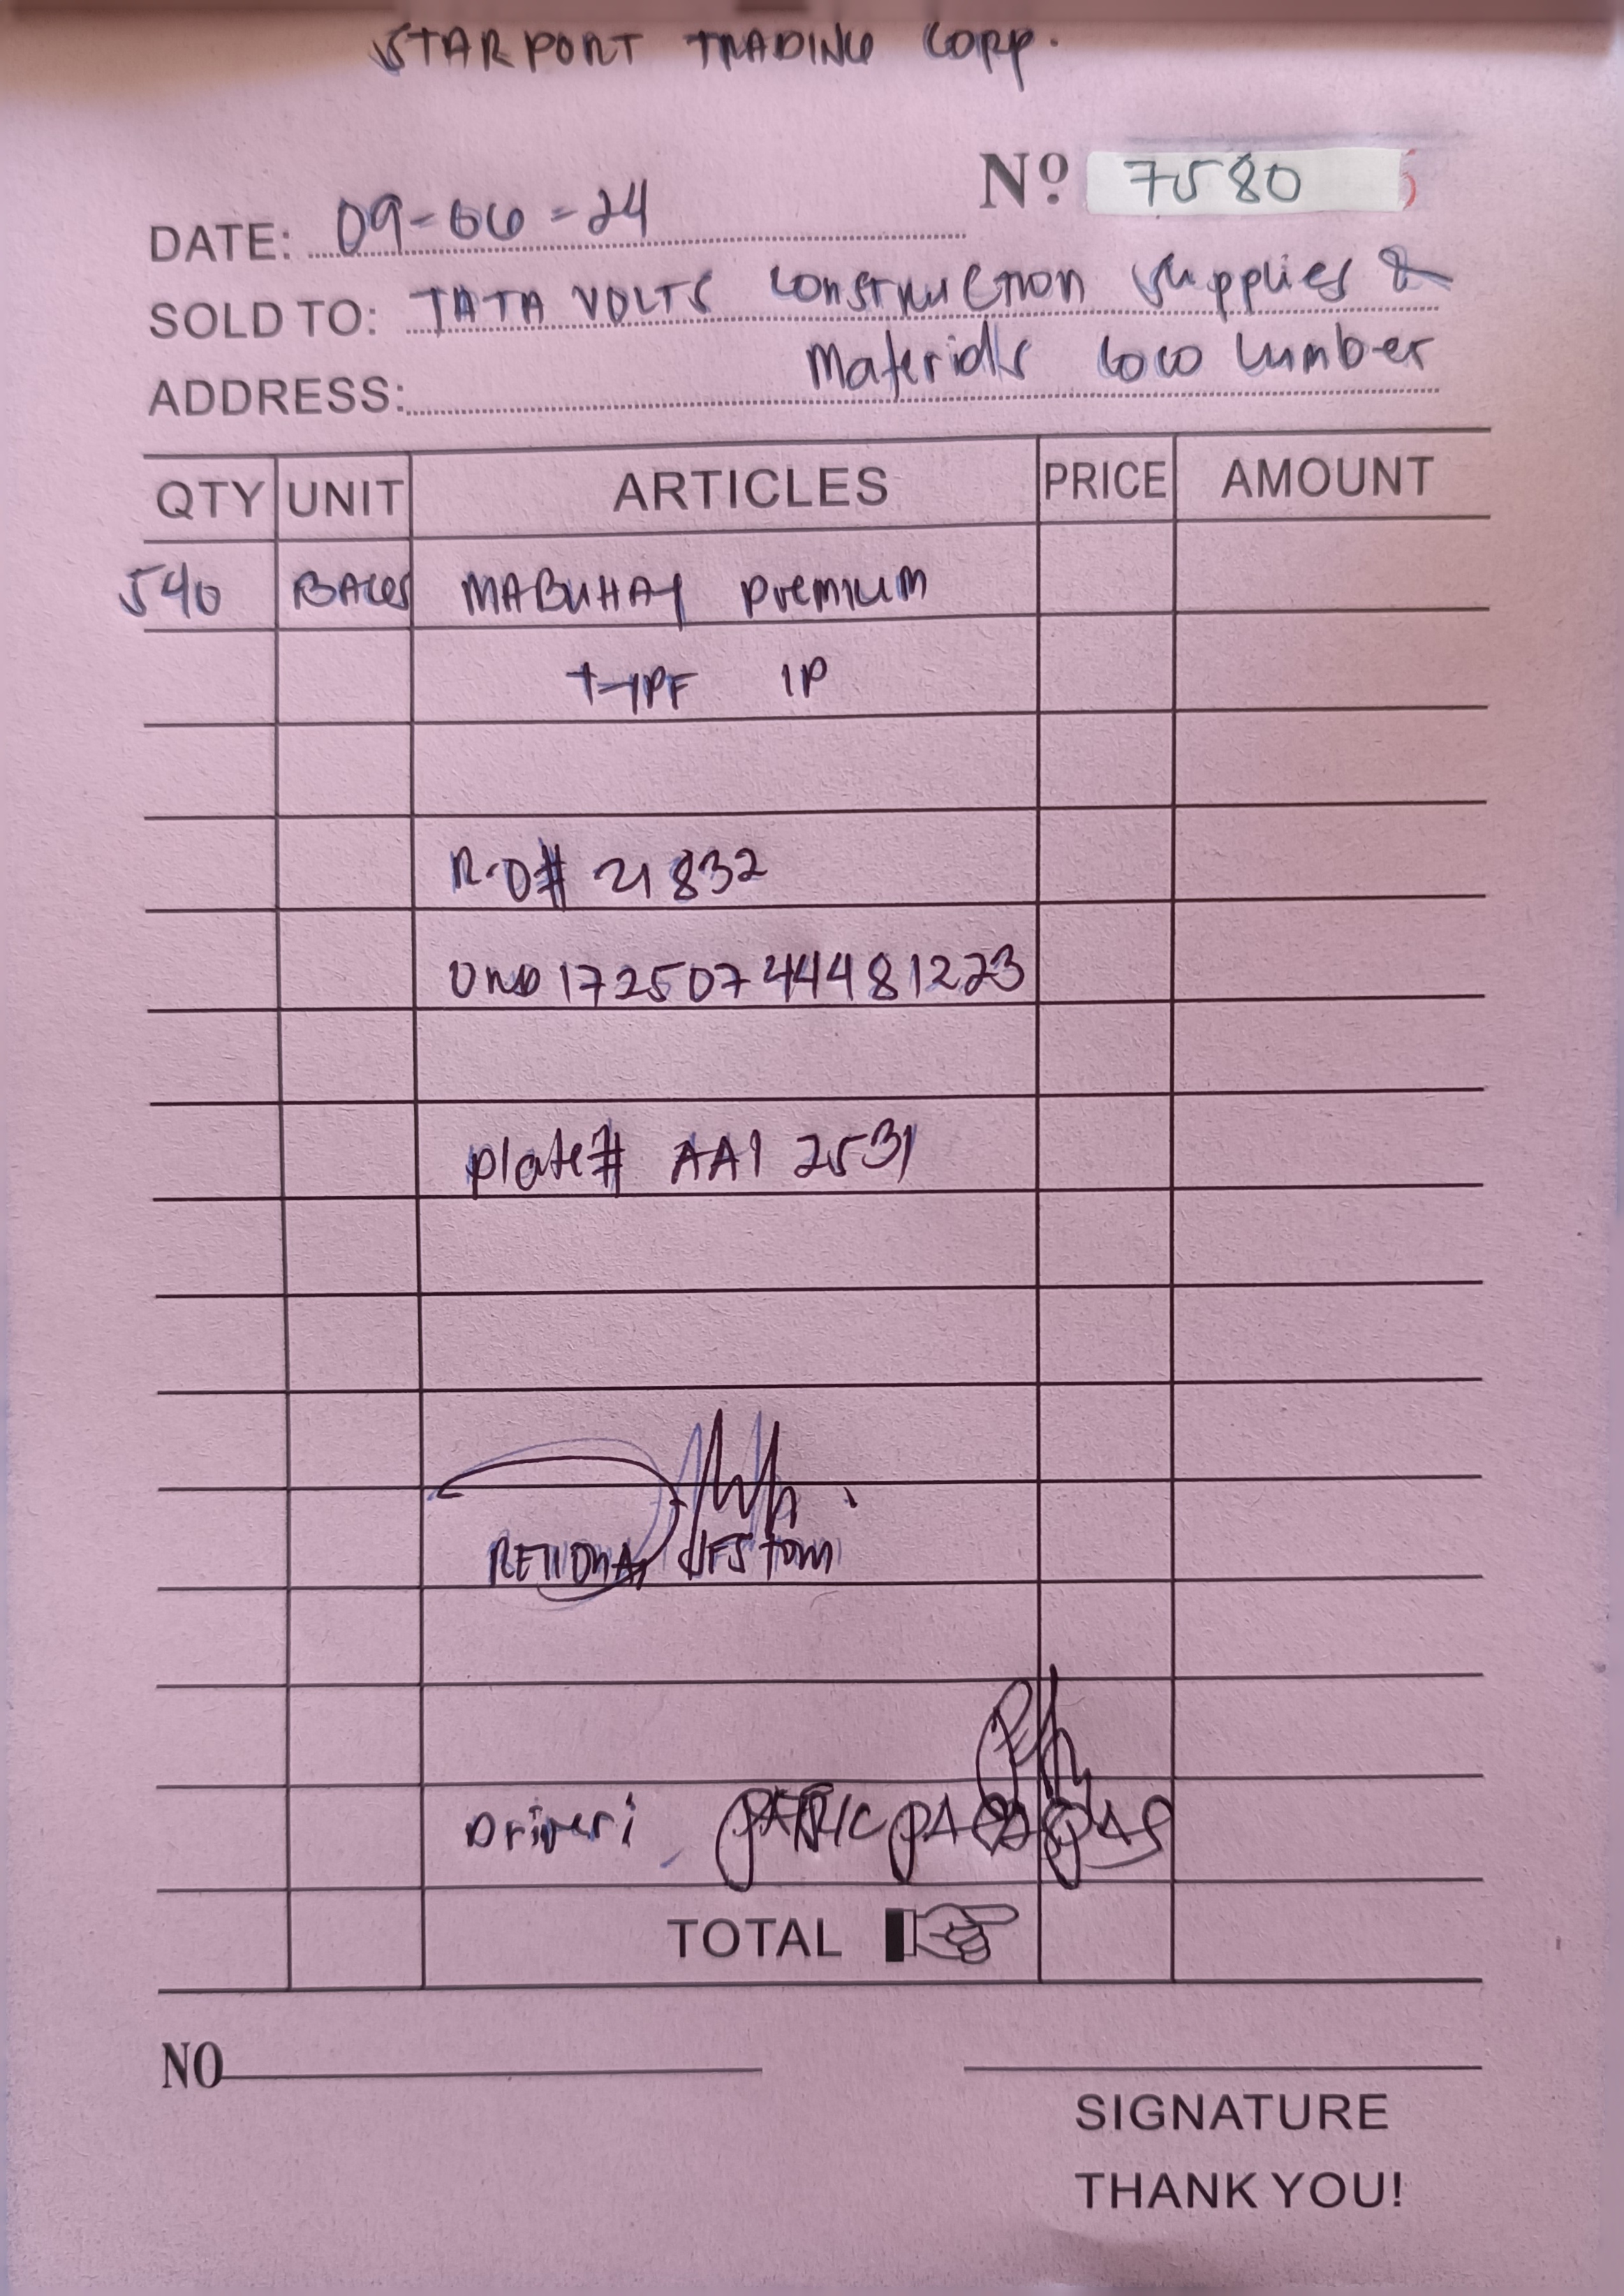 STARPORT TRADING CORP.
Nº 7580
DATE: 09-06-24
SOLD TO: TATA VOLTS Construction Supplies &
ADDRESS: Materials Coco Lumber
QTY UNIT ARTICLES PRICE AMOUNT
540 BAGS MABUHAY premium
TYPE 1P
R.O# 21832
ORD 172507444481223
plate# AAI 2531
Driver: PATRIC
TOTAL
NO
SIGNATURE
THANK YOU!